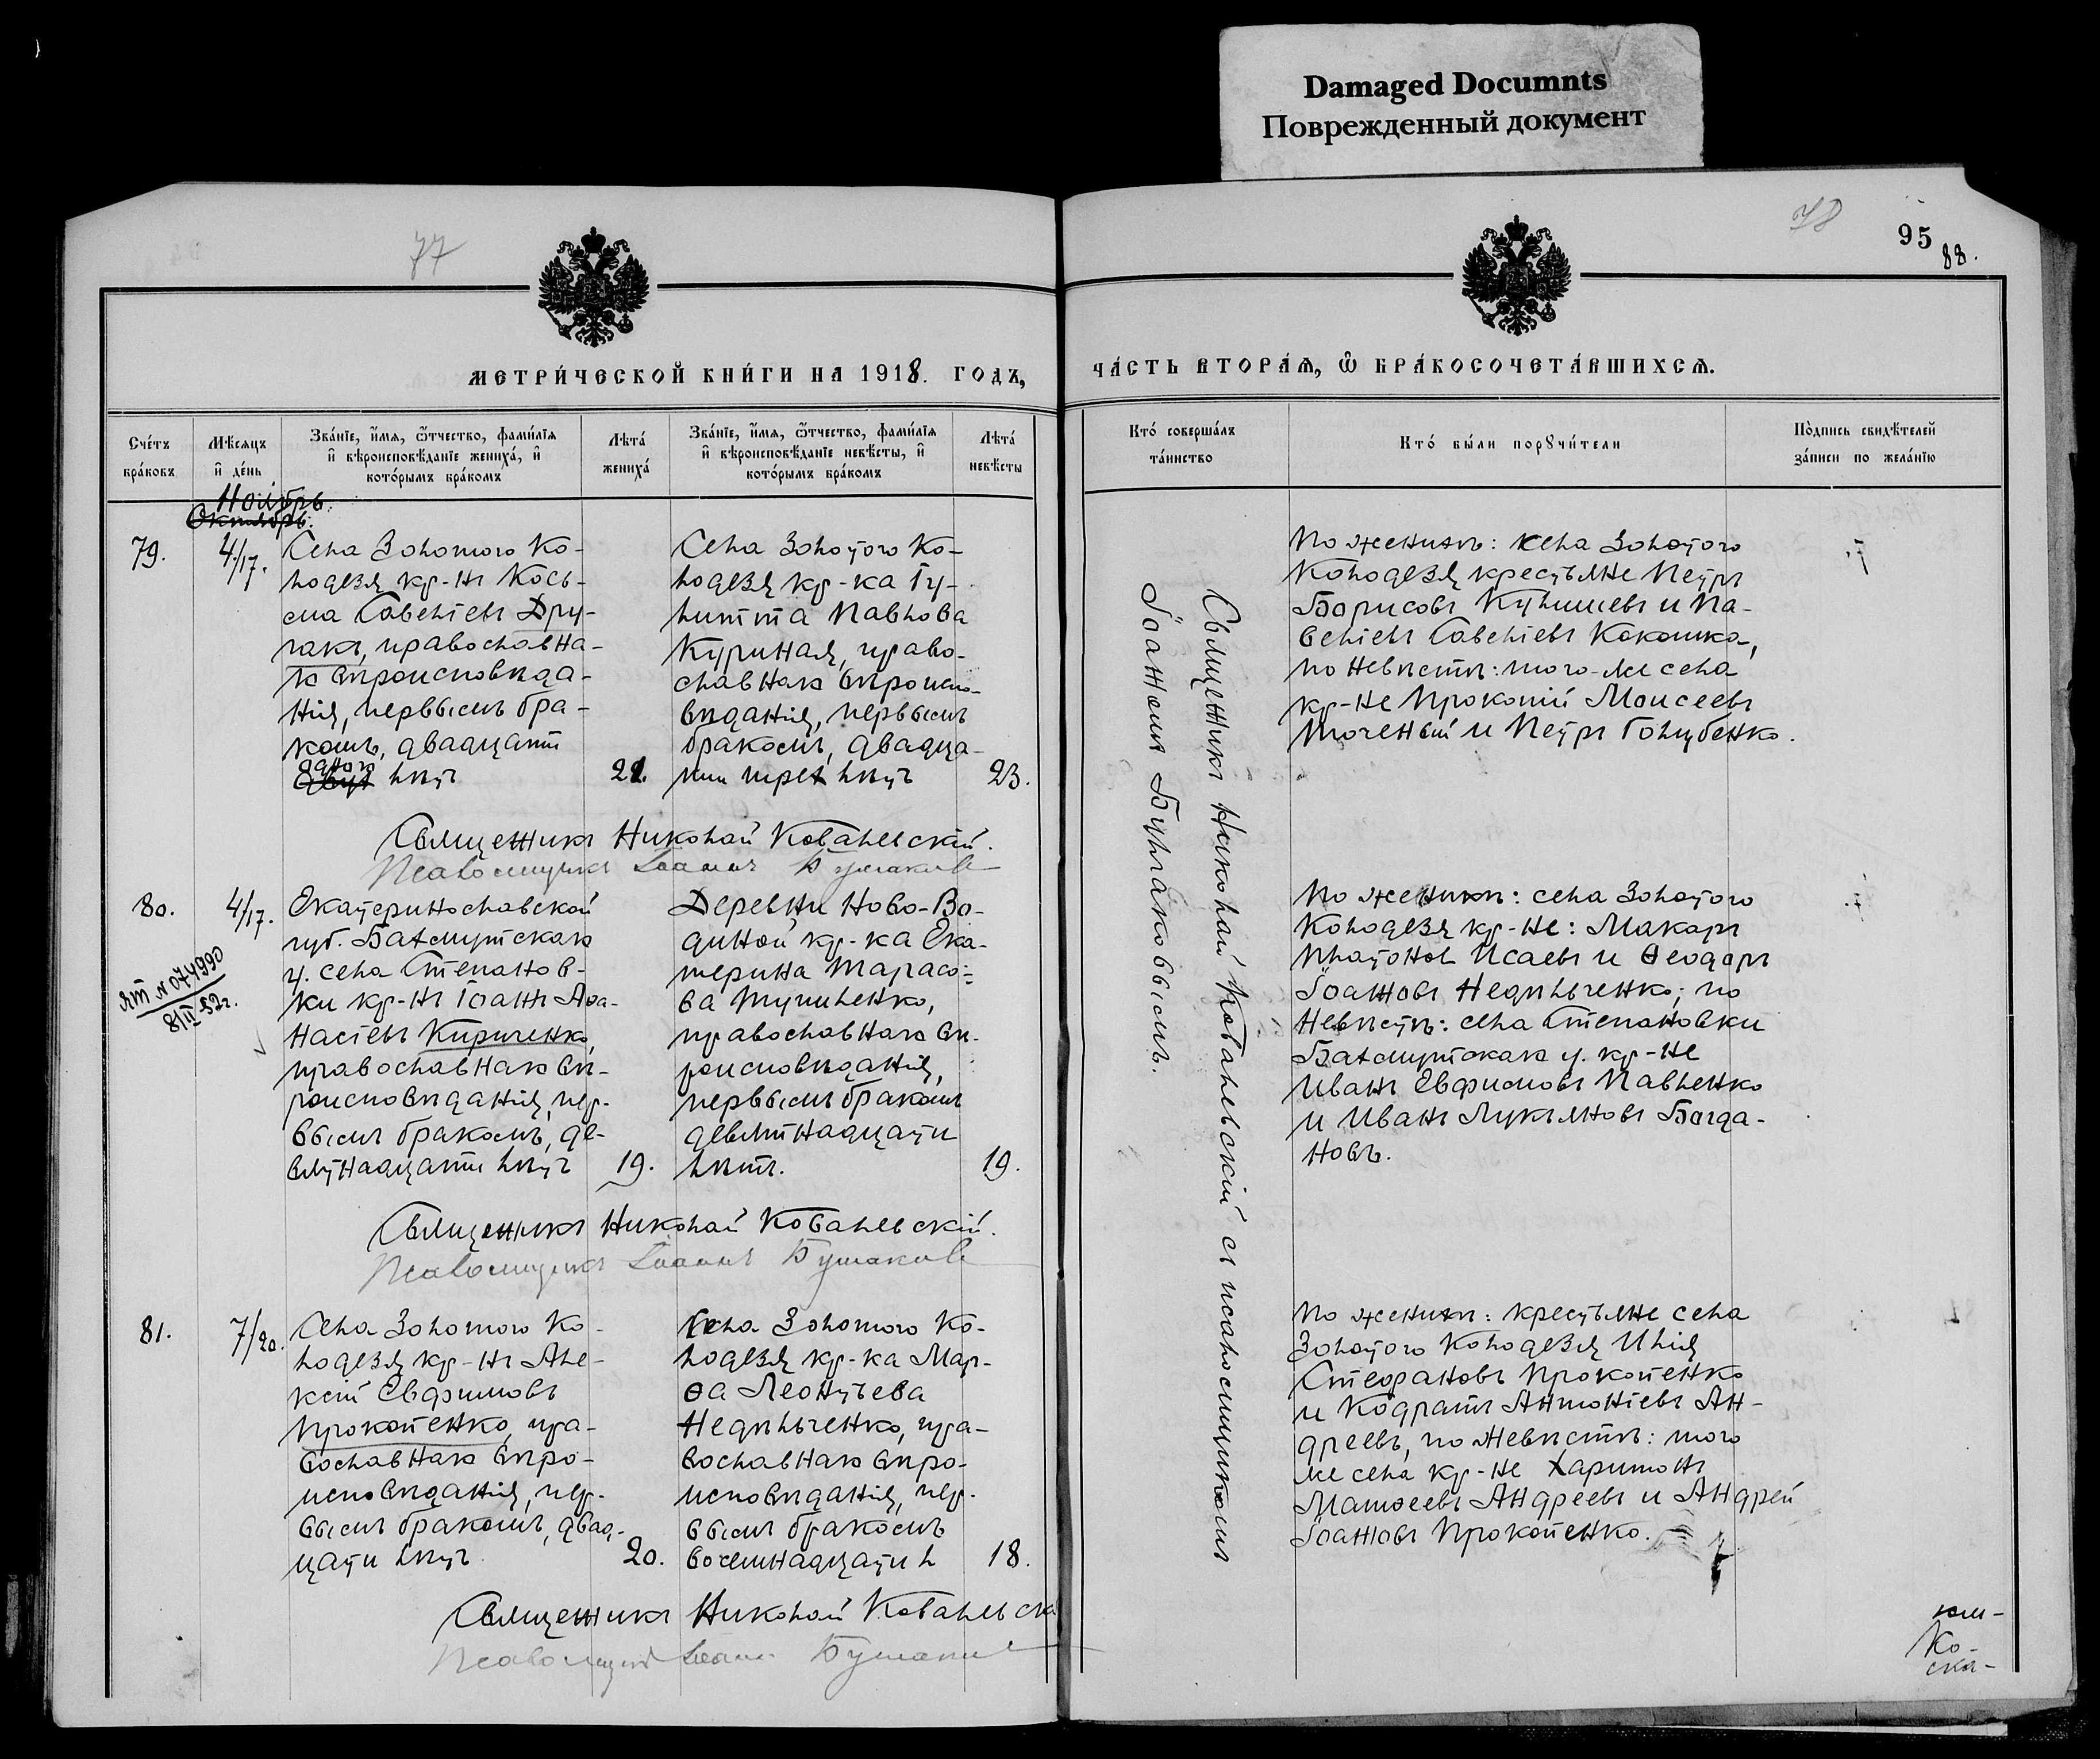 Damaged Documnts
Поврежденный документ
77
78
95
88.
МЕТРИ́ЧЕСКОЙ КНИ́ГИ НА 1918. ГОДЪ,
ЧА́СТЬ ВТОРА́Ѧ, Ѽ БРА́КОСОЧЕТА́ВШИХСѦ.
Сче́тъ бра́ковъ
Мѣ́сѧцъ и҆ де́нь
Зва́нїе, и҆́мѧ, ѻ҆́тчество, фами́лїѧ
и҆ вѣроисповѣ́данїе жениха́, и҆
кото́рымъ бра́комъ
Лѣта́ жениха́
Зва́нїе, и҆́мѧ, ѻ҆́тчество, фами́лїѧ
и҆ вѣроисповѣ́данїе невѣ́сты, и҆
кото́рымъ бра́комъ
Лѣта́ невѣ́сты
Кто́ соверша́лъ та́инство
Кто́ бы́ли порꙋчи́тели
По́дпись свидѣ́телей за́писи по жела́нїю
Ноябрь.
Октябрь.
79.
4/17.
Села Золотого Ко-
лодезя кр-нъ Кось-
ма Савельевъ Дру-
гакъ, православна-
го вѣроисповѣда-
нія, первымъ бра-
комъ, двадцати
одного
двухъ лѣтъ
21.
Села Золотого Ко-
лодезя кр-ка Іу-
литта Павлова
Куриная, право-
славнаго вѣроиспо-
вѣданія, первымъ
бракомъ, двадца-
ти трехъ лѣтъ
23.
Священникъ Николай Ковалевскій.
Псаломщикъ Іоаннъ Бурлаковъ
80.
4/17.
ЯТ № 074990
8/II 52г.
Екатеринославской
губ. Бахмутскаго
у. села Степанов-
ки кр-нъ Іоаннъ Аѳа-
насіевъ Кириченко,
православнаго вѣ-
роисповѣданія, пер-
вымъ бракомъ, де-
вятнадцати лѣтъ
19.
Деревни Ново-Во-
диной кр-ка Ека-
терина Тарасо-
ва Тупиленко,
православнаго вѣ-
роисповѣданія,
первымъ бракомъ
девятнадцати
лѣтъ.
19.
Священникъ Николай Ковалевскій.
Псаломщикъ Іоаннъ Бурлаковъ
81.
7/20.
Села Золотого Ко-
лодезя кр-нъ Але-
ксѣй Евфимовъ
Прокопенко, пра-
вославнаго вѣро-
исповѣданія, пер-
вымъ бракомъ, двад-
цати лѣтъ
20.
Села Золотого Ко-
лодезя кр-ка Мар-
ѳа Леонтьева
Недѣльченко, пра-
вославнаго вѣро-
исповѣданія, пер-
вымъ бракомъ
восемнадцати л
18.
Священникъ Николай Ковалевскі
Псаломщикъ Іоаннъ Бурлаковъ
Священникъ Николай Ковалевскій съ псаломщикомъ
Іоанномъ Бурлаковымъ.
По женихѣ: села Золотого
Колодезя крестьяне Петръ
Борисовъ Кулишевъ и Са-
велій Савельевъ Кокошко,
по невѣстѣ: того-же села
кр-не Прокопій Моисеевъ
Точеный и Петръ Голубенко.
По женихѣ: села Золотого
Колодезя кр-не: Макаръ
Платоновъ Исаевъ и Ѳеодоръ
Іоанновъ Недѣльченко; по
невѣстѣ: села Степановки
Бахмутскаго у. кр-не
Иванъ Евфимовъ Павленко
и Иванъ Лукьяновъ Богда-
новъ.
По женихѣ: крестьяне села
Золотого Колодезя Илія
Стефановъ Прокопенко
и Кодратъ Антоніевъ Ан-
дреевъ, по невѣстѣ: того
же села кр-не Харитонъ
Матѳеевъ Андреевъ и Андрей
Іоанновъ Прокопенко.
ком-
Ко-
ска-